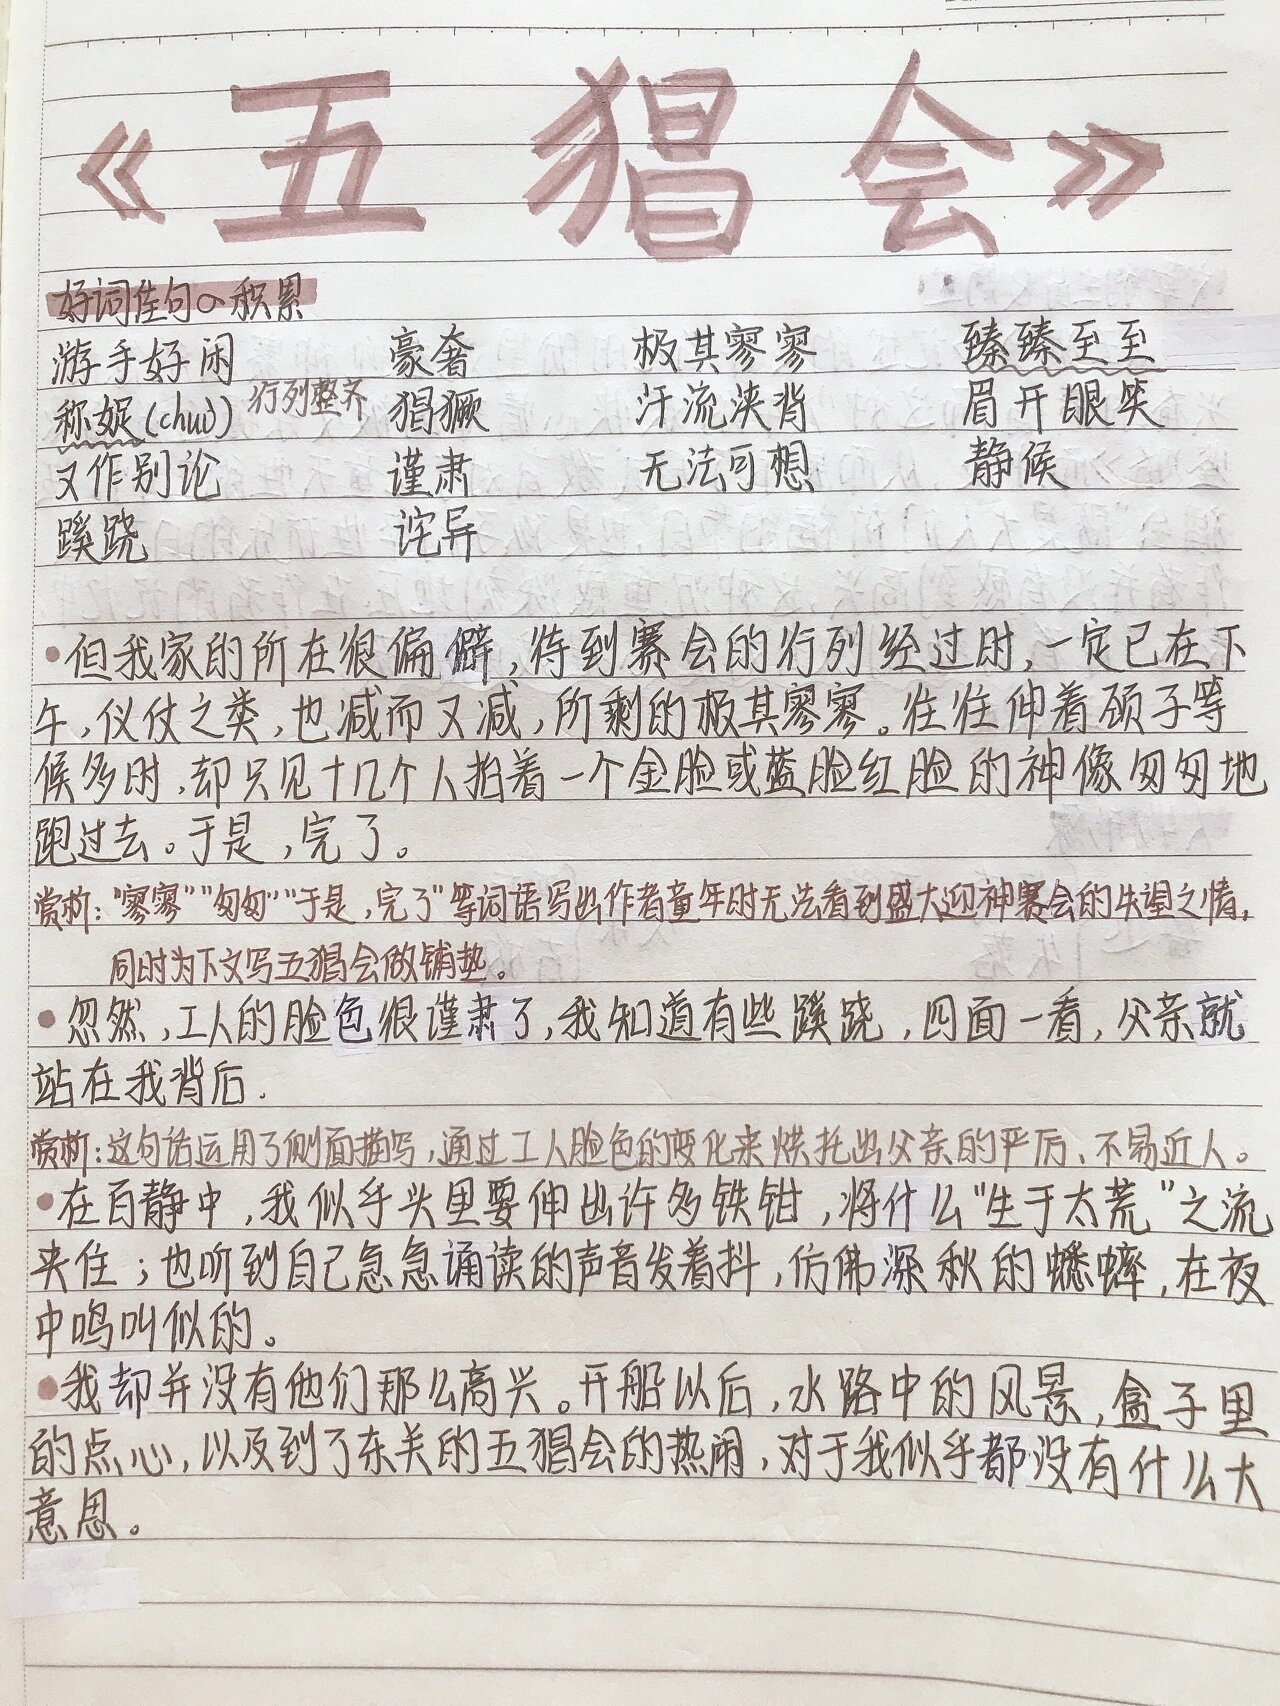 《五猖会》
好词佳句の积累
游手好闲 豪奢 极其寥寥 臻臻至至
称娖(chuò) 行列整齐 猖獗 汗流浃背 眉开眼笑
又作别论 谨肃 无法可想 静候
蹊跷 诧异
●但我家的所在很偏僻,待到赛会的行列经过时,一定已在下
午,仪仗之类,也减而又减,所剩的极其寥寥。往往伸着颈子等
候多时,却只见十几个人抬着一个金脸或蓝脸红脸的神像匆匆地
跑过去。于是,完了。
赏析:“寥寥”“匆匆”“于是,完了”等词语写出作者童年时无法看到盛大迎神赛会的失望之情,
同时为下文写五猖会做铺垫。
●忽然,工人的脸色很谨肃了,我知道有些蹊跷,四面一看,父亲就
站在我背后.
赏析:这句话运用了侧面描写,通过工人脸色的变化来烘托出父亲的严厉、不易近人。
●在百静中,我似乎头里要伸出许多铁钳,将什么“生于太荒”之流
夹住;也听到自己急急诵读的声音发着抖,仿佛深秋的蟋蟀,在夜
中鸣叫似的。
●我却并没有他们那么高兴。开船以后,水路中的风景,盒子里
的点心,以及到了东关的五猖会的热闹,对于我似乎都没有什么大
意思。